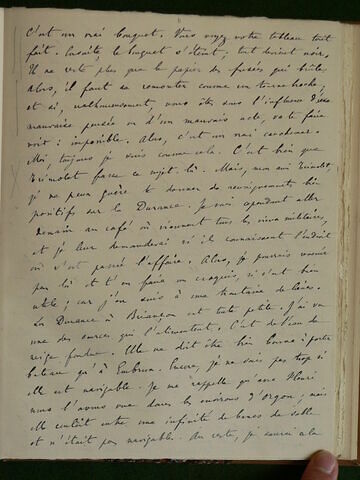 C'est un vrai bouquet. Vous voyez votre tableau tout
fait. Ensuite, le bouquet s'éteint, tout devient noir.
Il ne reste plus que le papier des fusées qui brûle.
Alors, il faut se remonter comme un tournebroche,
et si, malheureusement, vous êtes sous l'influence d'une
mauvaise pensée ou d'un mauvais acte, va te faire
voir : impossible. Alors, c'est un vrai cauchemar.
Moi, toujours je suis comme cela. C'est bien que
Trimolet fasse ce sujet-là. Mais, mon ami Trimolet,
je ne peux guère te donner de renseignements bien
positifs sur la Durance. Je vais cependant aller
demain au café où viennent tous les vieux militaires,
et je leur demanderai si ils connaissent l'endroit
où s'est passé l'affaire. Alors, je pourrais
par là et t'en faire un croquis, si c'est bien
utile ; car j'en suis à une trentaine de lieues.
La Durance à Briançon est toute petite. J'ai vu
une des sources qui l'alimentent. C'est de l'eau de
neige fondue. Elle ne doit être bien bonne à porter
bateau qu'à Embrun. Encore, je ne sais pas trop si
elle est navigable. Je me rappelle qu'avec Henri
nous l'avons vue dans les environs d'Orgon ; mais
elle coulait entre une infinité de bancs de sable
et n'était pas navigable. Au reste, je saurai cela